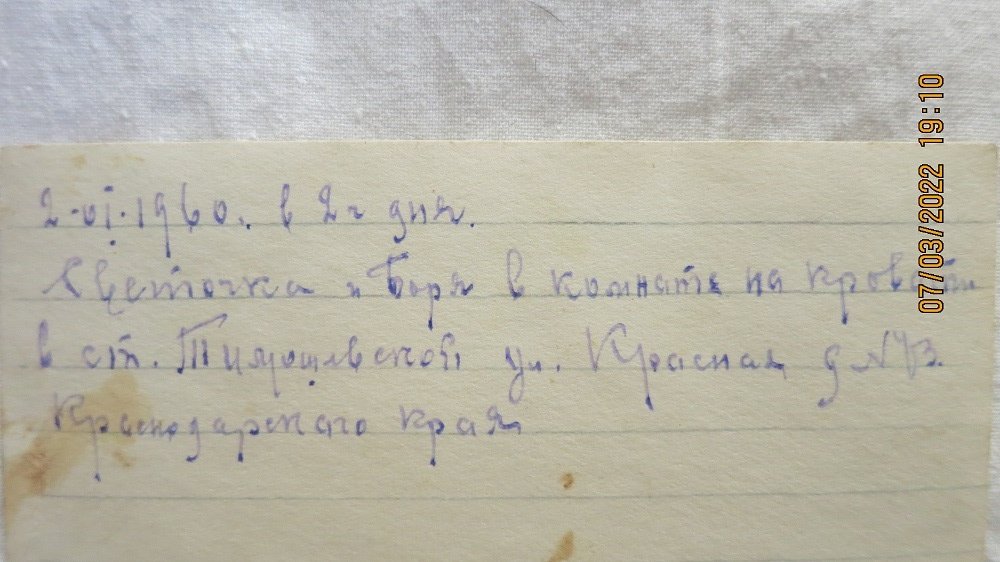 2.VI.1960. в 2 ч дня.
Цветочка и Боря в комнате на кровати
в ст. Тимошевской ул. Красная д №
Краснодарского края
07/03/2022 19:10